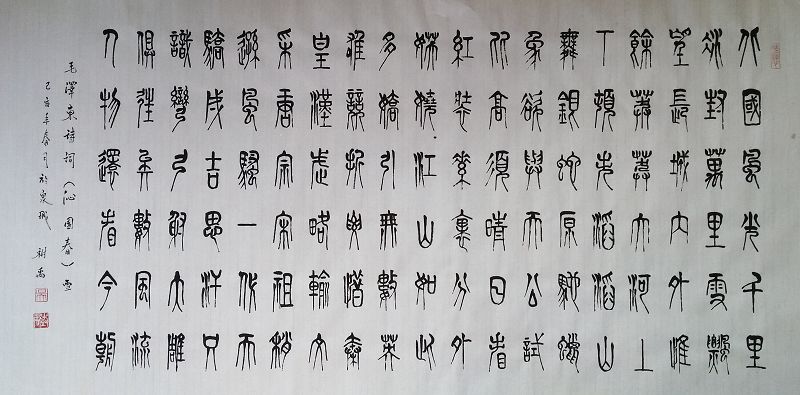 北國風光千里
冰封萬里雪飄
望長城內外惟
餘莽莽大河上
下頓失滔滔山
舞銀蛇原馳蠟
象欲與天公試
比高須晴日看
紅裝素裹分外
妖嬈江山如此
多嬌引無數英
雄競折腰惜秦
皇漢武略輸文
采唐宗宋祖稍
遜風騷一代天
驕成吉思汗只
識彎弓射大雕
俱往矣數風流
人物還看今朝
毛澤東詩詞（沁園春）雪
己亥年春月於泉城